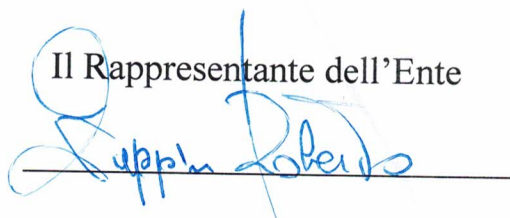 Il Rappresentante dell'Ente
Roberto